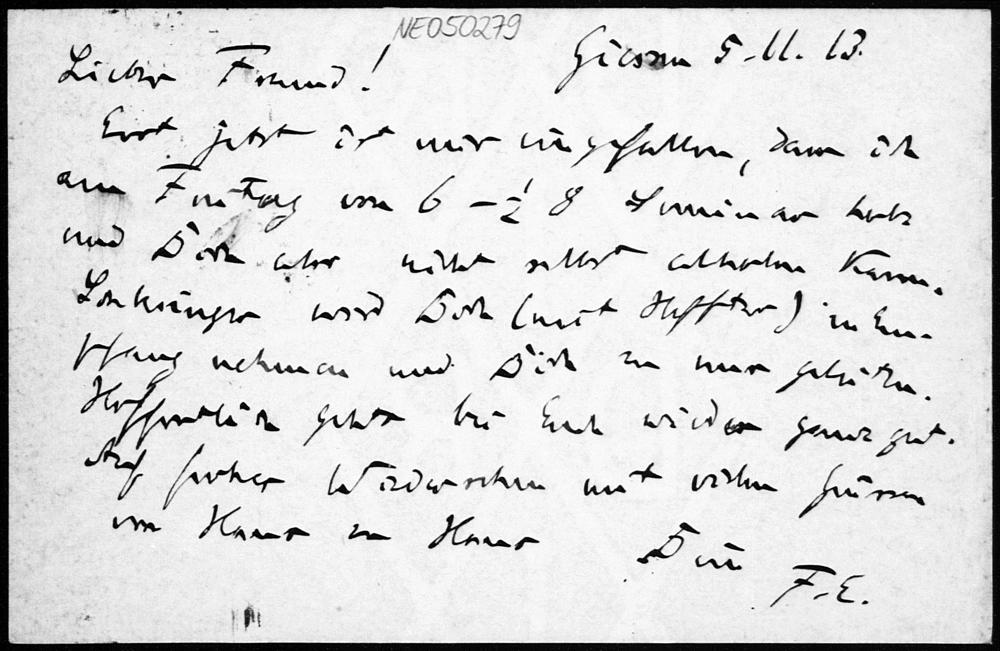 NE050279
Giessen 5.11.13.
Lieber Freund!
Erst jetzt ist mir eingefallen, dass ich
am Freitag von 6 - ½ 8 Seminar habe
und Dich also nicht selbst abholen kann.
wird Dich (mit Hoffter) in Em-
pfang nehmen und Dich zu mir geleiten.
Hoffentlich geht's bei Euch wieder ganz gut.
Auf frohes Wiedersehen mit vielen Grüssen
von Haus zu Haus
Dein
F.E.